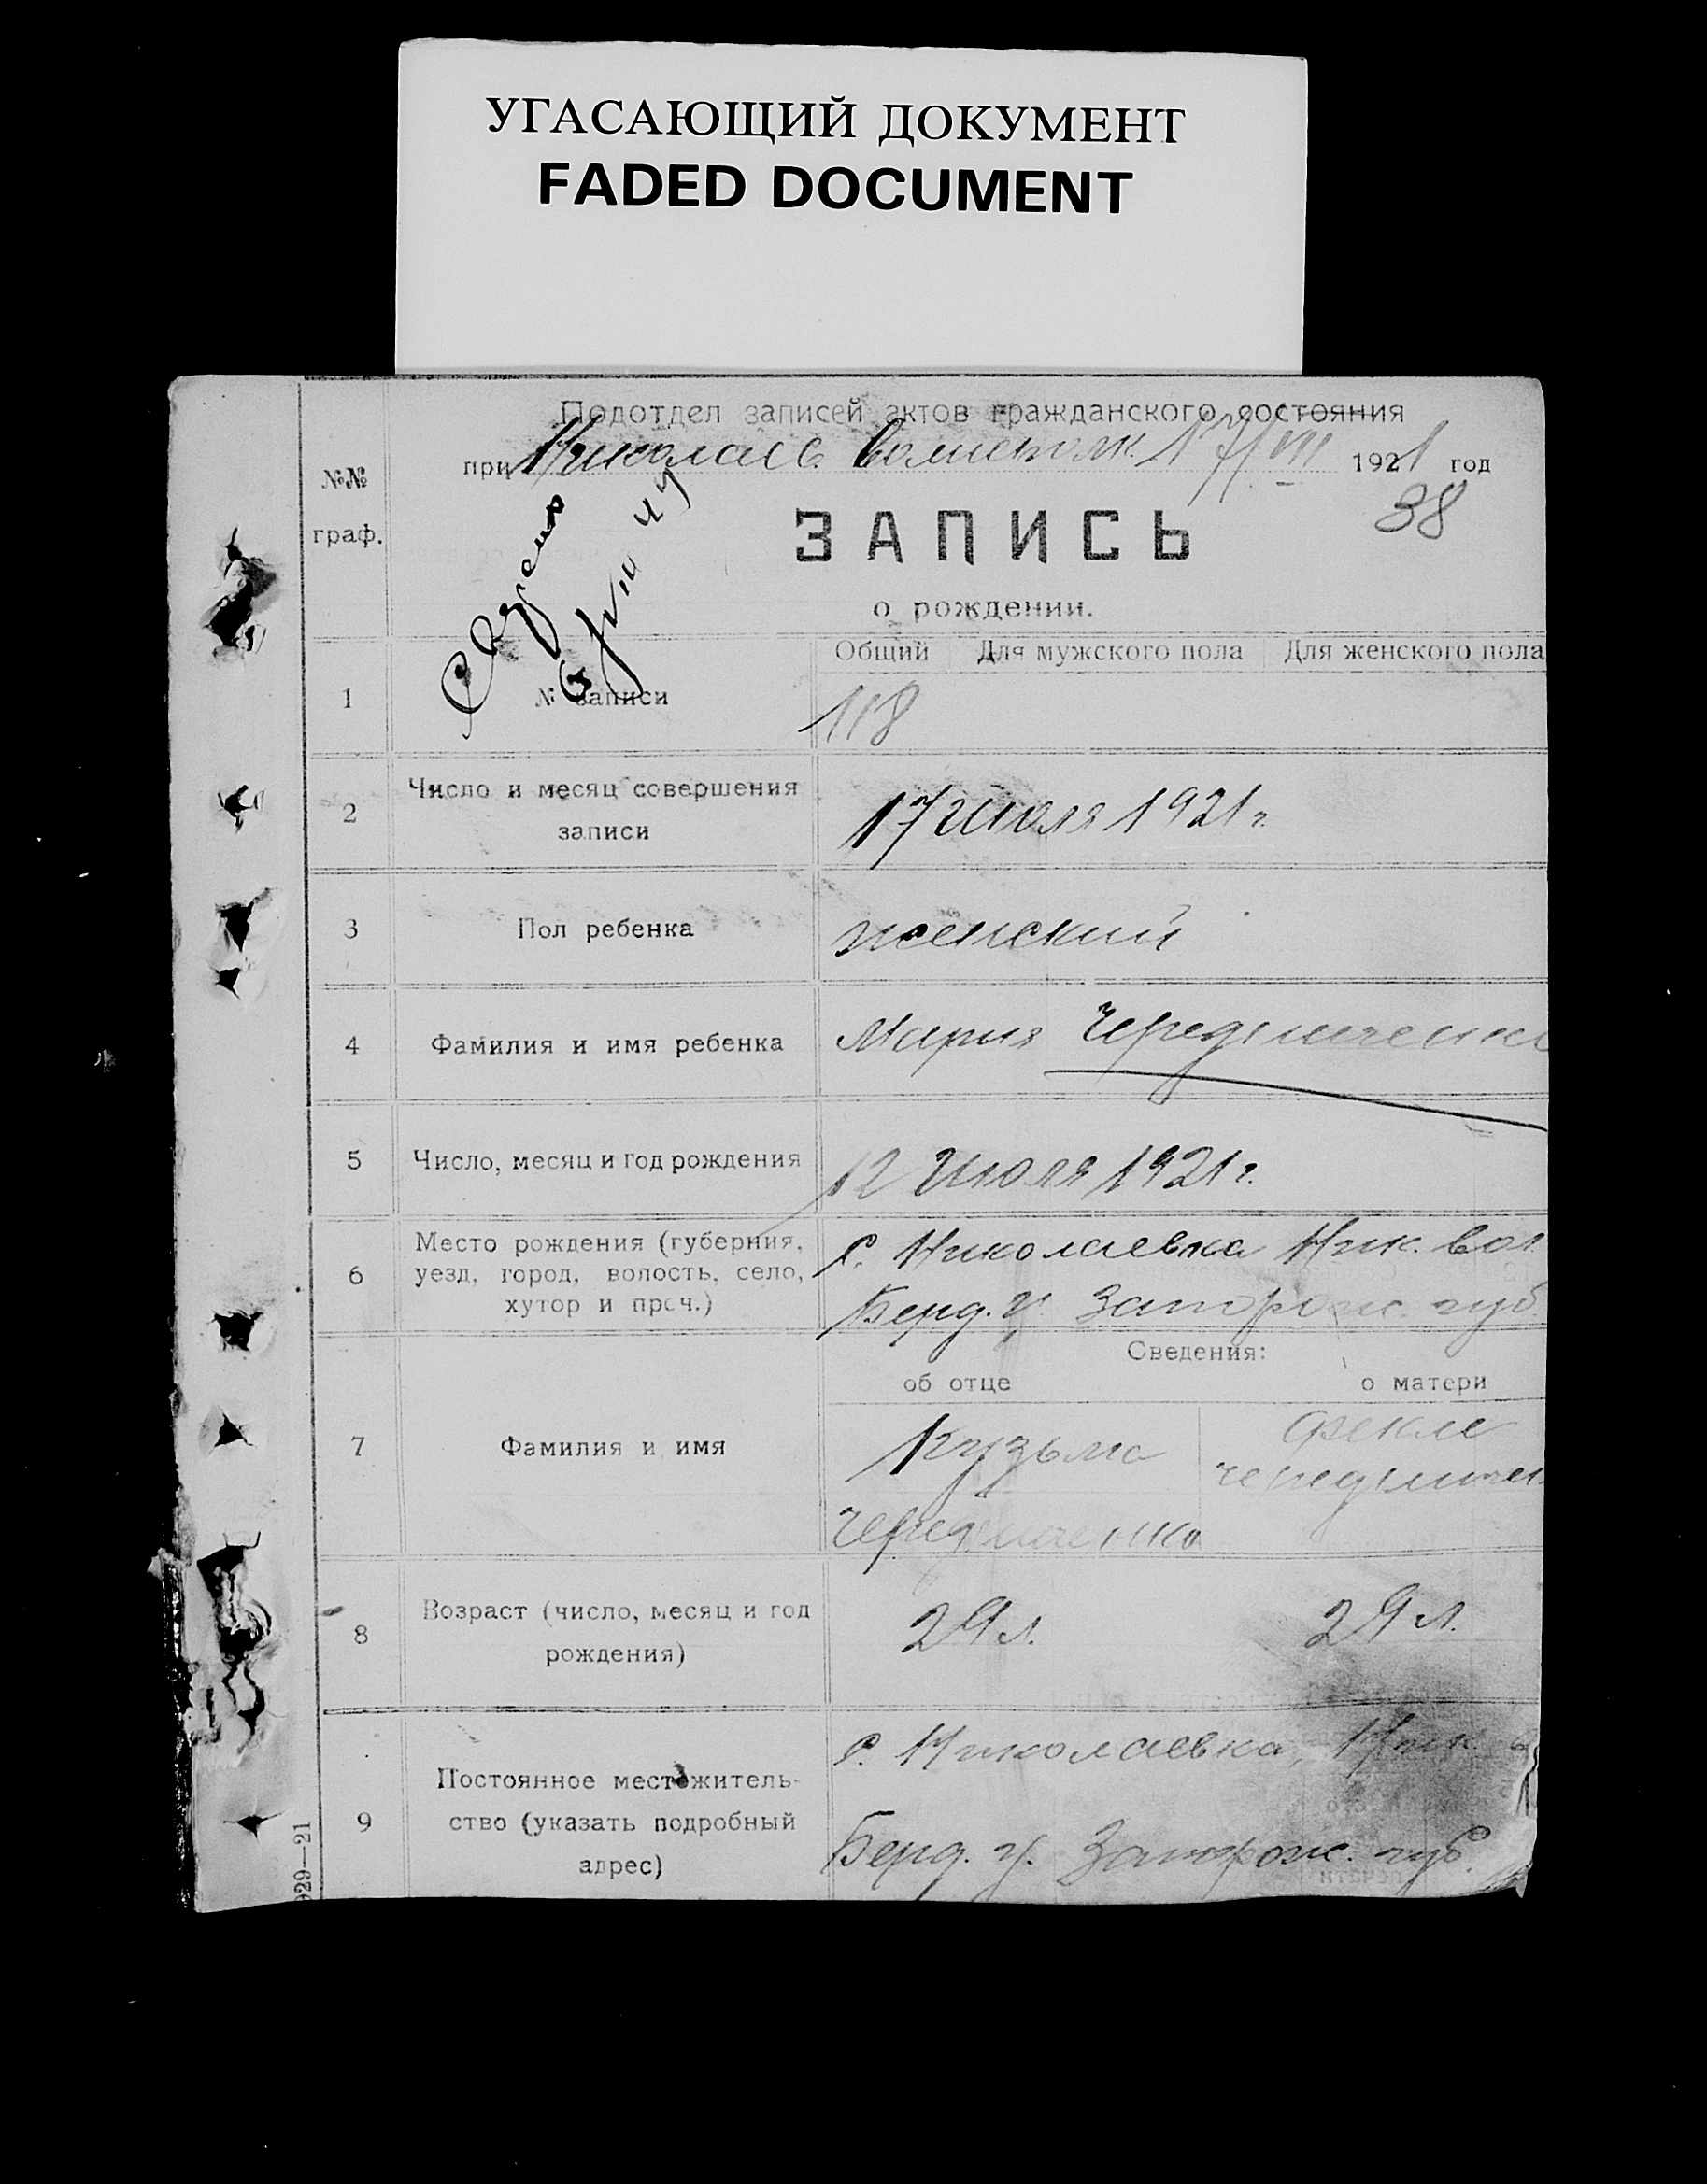 УГАСАЮЩИЙ ДОКУМЕНТ
FADED DOCUMENT
Подотдел записей актов гражданского состояния
при 17/VII 1921 год
№№
граф.
38
ЗАПИСЬ
о рождении.
Общий Для мужского пола Для женского пола
1 № записи 118
2 Число и месяц совершения
записи
17 Июля 1921 г.
3 Пол ребенка женский
4 Фамилия и имя ребенка Мария Чередниченко
5 Число, месяц и год рождения 12 Июля 1921 г.
6 Место рождения (губерния,
уезд, город, волость, село,
хутор и проч.)
с. Николаевка Ник. вол.
Берд. у. Запорож. губ.
Сведения:
об отце о матери
7 Фамилия и имя
Кузьма
Чередниченко
Фекле
Чередничен
8 Возраст (число, месяц и год
рождения)
29 л. 29 л.
9 Постоянное местожитель-
ство (указать подробный
адрес)
с. Николаевка, Ник. в
Берд. у. Запорож. губ.
929—21